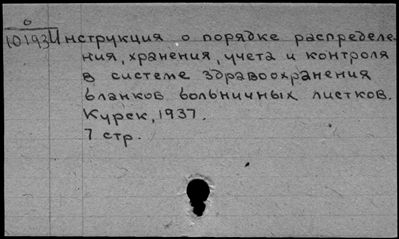 о
10193
Инструкция о порядке распределе-
ния, хранения, учета и контроля
в системе здравоохранения
бланков больничных листков.
Курск, 1937.
7 стр.